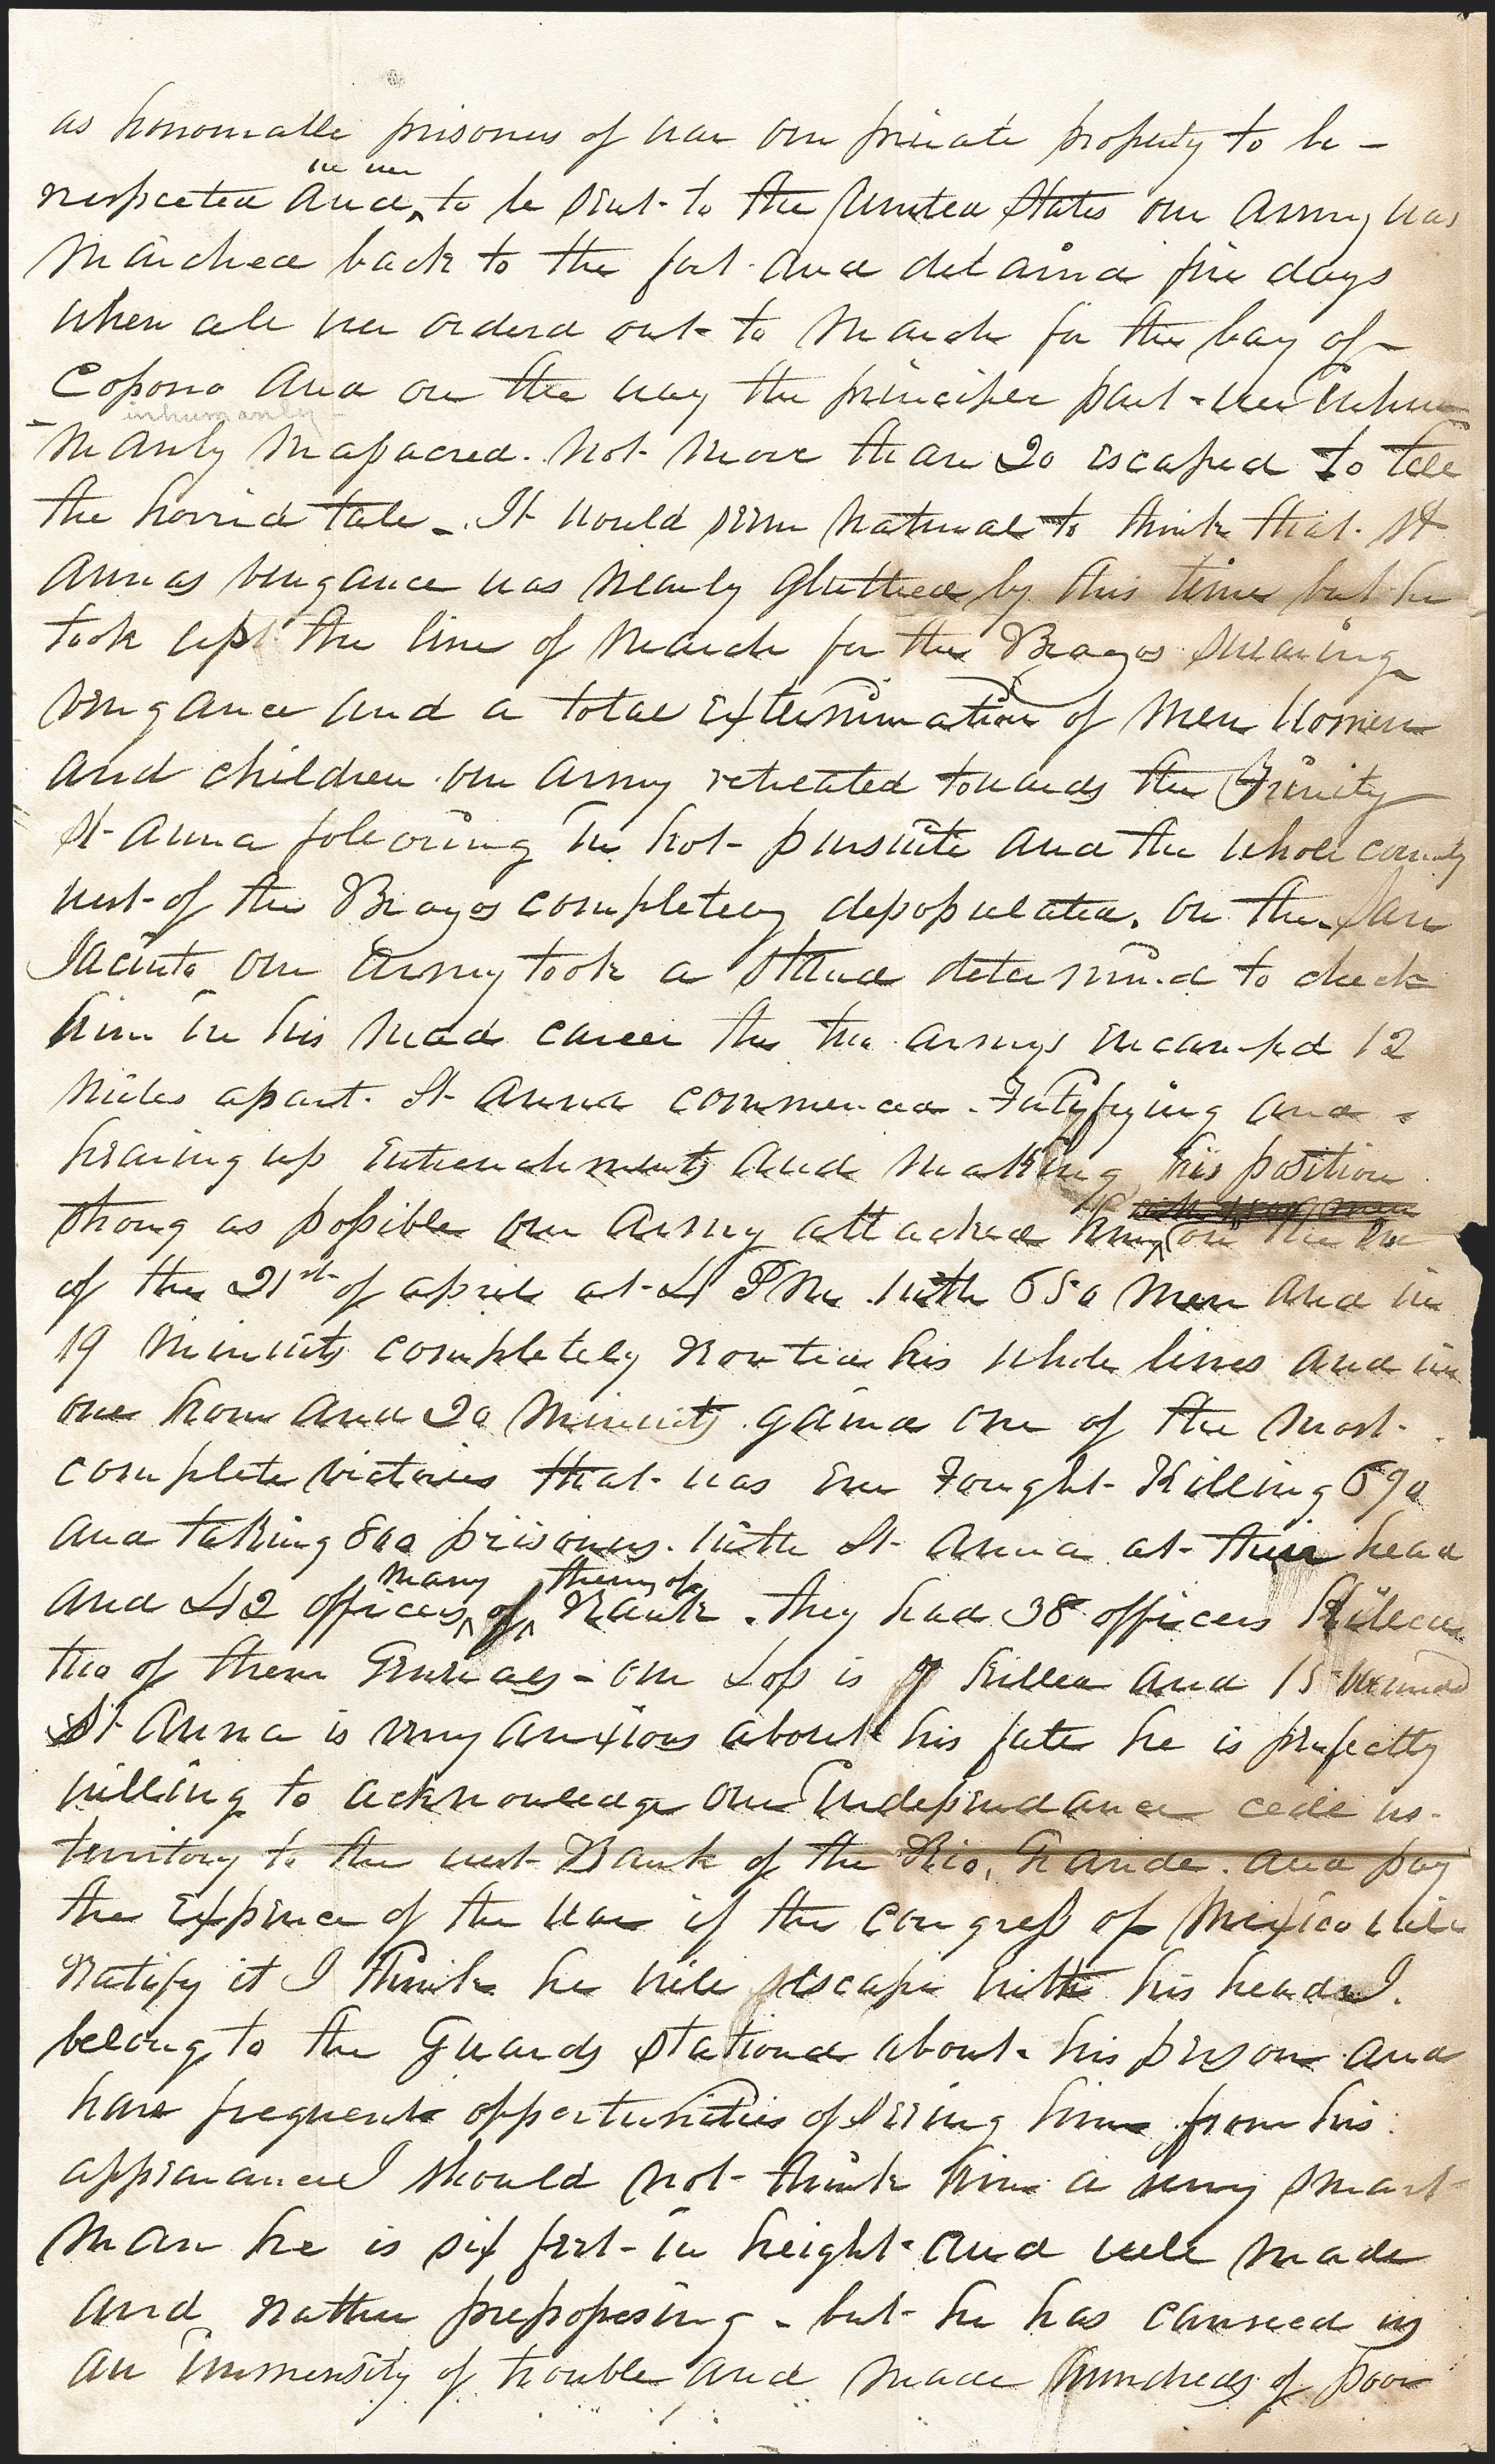 as honourable prisoners of war our private property to be -
we wer
respected and to be sent to the United States our army was
Marched back to the fort and detaind five days
when all wer orderd out to March for the bay of
Copono And on the way the principle part wer inhu
inhumanly
manly Massacred. Not More than 20 escaped to tell
the horrid tale. It would seem natural to think that St
Annas vengance was nearly gluttted by this time but he
took up the line of March for the Brazos swearing
vengance and a total extermination of Men Women
and children our army retreated towards the Trinity
St Anna following in hot pursuite and the whole country
west of the Brazos completely depopulated. on the San
Jacinto our Army took a stand determind to check
him in his Mad career the two armys encampd 12
Miles apart. St Anna commenced Fortyfying and
heaving up entrenchments And Making his position
with men
strong as possible our Army attacked him on the
of the 21st of april at 4 PM with 650 Men And in
19 Minuits completely Routed his whole lines and in
one hour and 20 Minuits gaind one of the most
complete victories that was ever Fought Killing 690
and taking 800 prisoners with St Anna at their head
many them of
and 42 officers of Rank. they had 38 officers Killed
two of them Generals - our Loss is 7 Killed and 15 wounded
St Anna is very anxious about his fate he is perfectly
willing to acknowledge our Independance cede us
territory to the west Bank of the Rio Grande. and pay
the Expence of the war if the congress of Mexico will
Ratify it I think he will escape with his head I
belong to the Guards stationed about his person and
have frequent opportunities of seeing him from his
appearance I should not think him a very smart
Man he is six feet in height and well made
and rather prepossesing - but he has caused us
an immensity of trouble and Made hundreds of poor